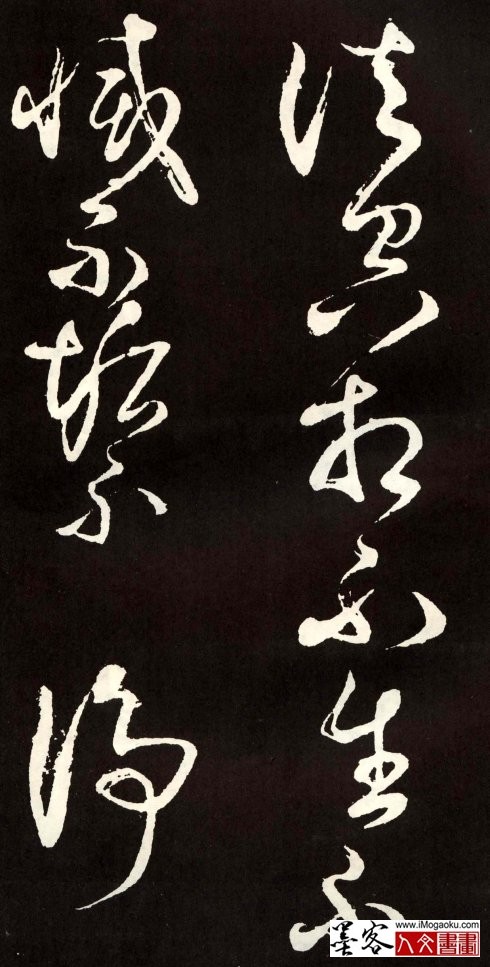 法空相不生不
滅不垢不淨
墨客
www.iMogaoku.com
人文書畫